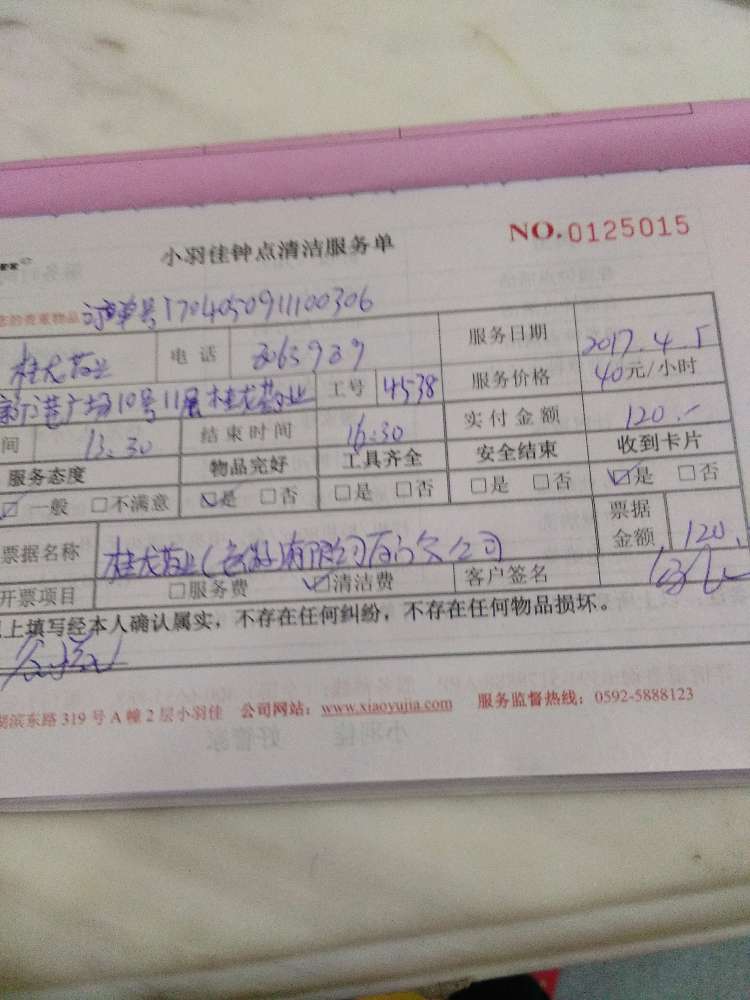 小羽佳钟点清洁服务单
NO.0125015
的贵重物品 订单号1704050911100306
桂龙药业 电话 2065939 服务日期 2017 4 5
广场10号11层桂龙药业 工号 4538 服务价格 40元/小时
间 13:30 结束时间 16:30 实付金额 120.-
服务态度 物品完好 工具齐全 安全结束 收到卡片
☑一般 □不满意 ☑是 □否 □是 □否 □是 □否 ☑是 □否
票据名称 桂龙药业( 有限公司 公司 票据金额 120.
开票项目 □服务费 ☑清洁费 客户签名
上填写经本人确认属实，不存在任何纠纷，不存在任何物品损坏。
湖滨东路319号A幢2层小羽佳 公司网站：www.xiaoyujia.com 服务监督热线：0592-5888123